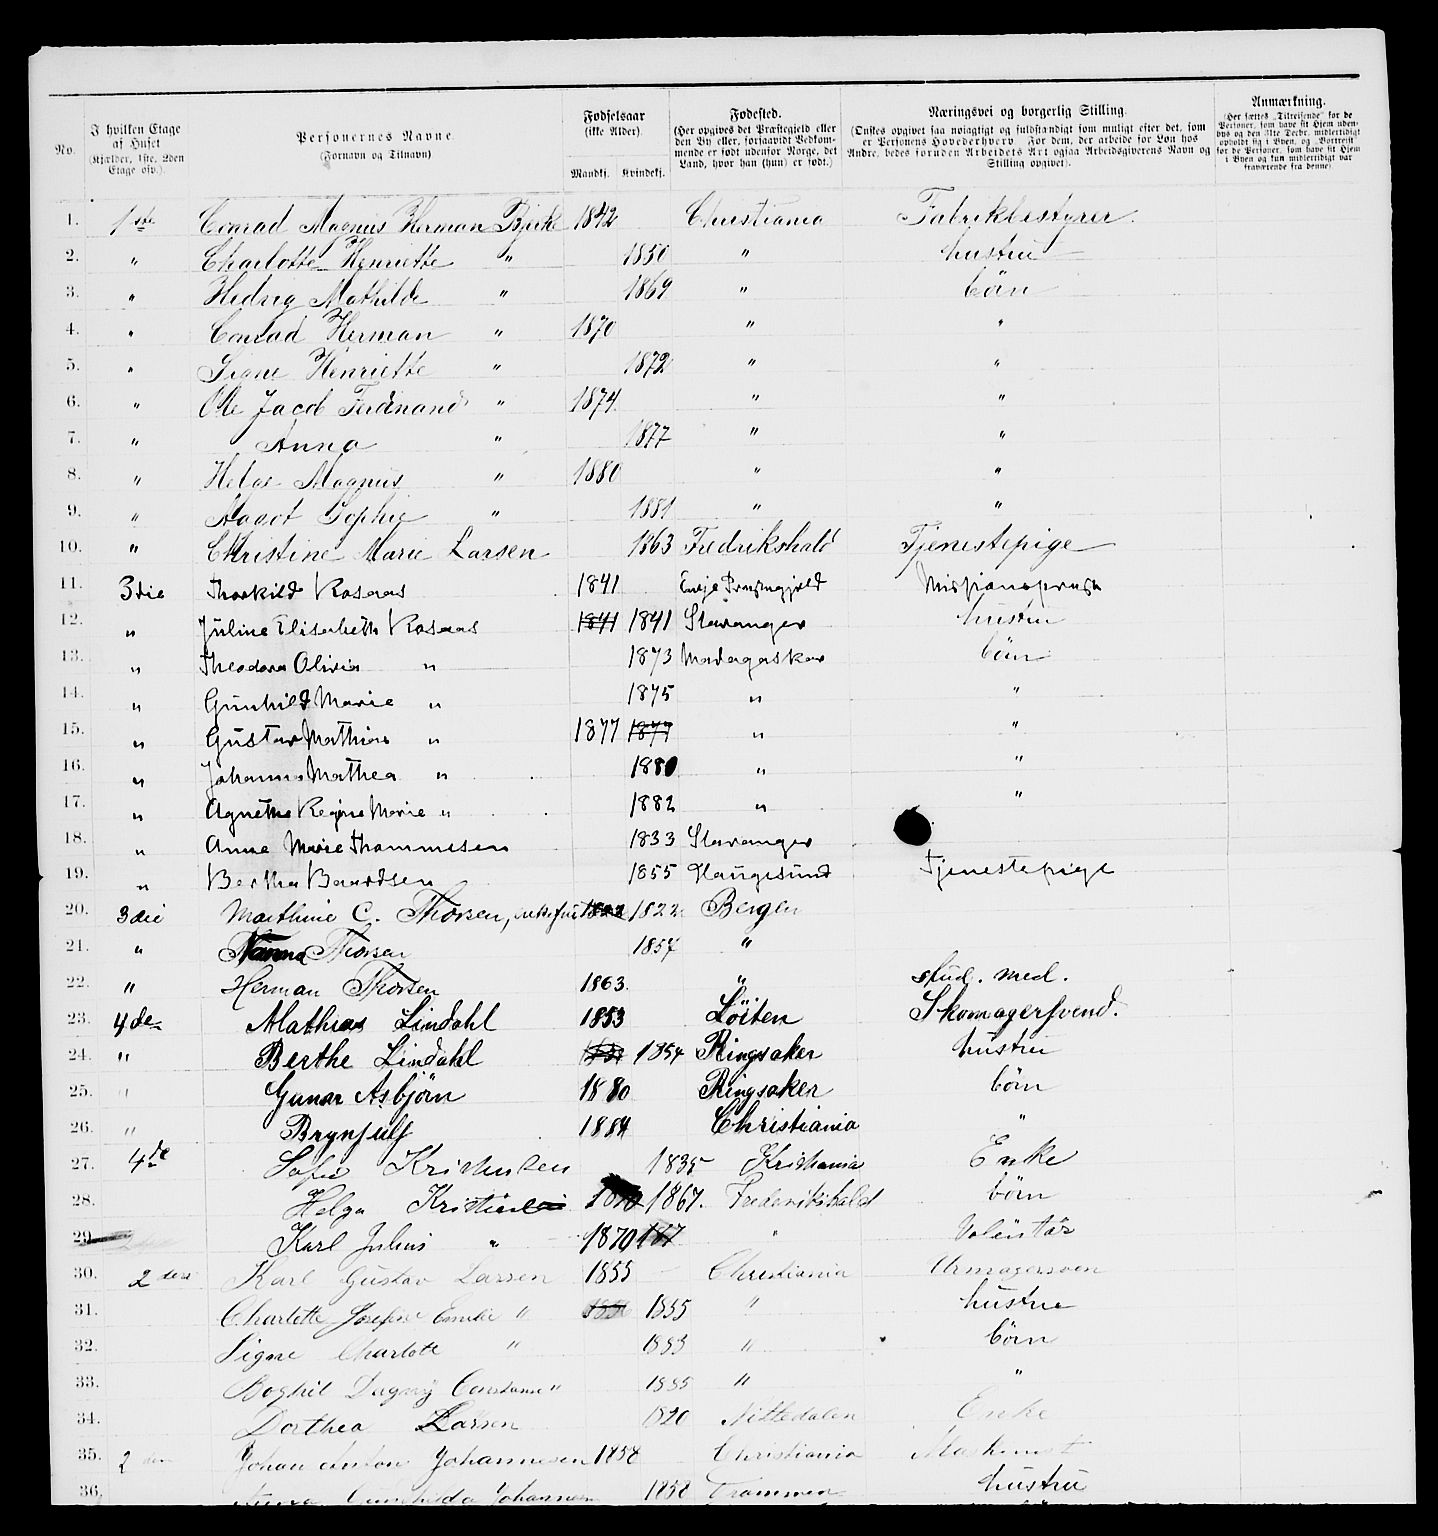 No.
I hvilken Etage af Huset (Kjælder, 1ste, 2den Etage osv.).
Personernes Navne (Fornavn og Tilnavn)
Fødselsaar (ikke Alder). Mandkj. Kvindekj.
Fødested. (Her opgives det Præstegjeld eller den By eller, forsaavidt Vedkommende er født udenfor Norge, det Land, hvor han (hun) er født.)
Næringsvei og borgerlig Stilling. (Ønskes opgivet saa nøiagtigt og fuldstændigt som muligt efter det, som er Personens Hovederhverv. For dem, der arbeide for Løn hos Andre, bedes foruden Arbeidets Art ogsaa Arbeidsgiverens Navn og Stilling opgivet).
Anmærkning. (Her sættes „Tilreisende" for de Personer, som have sit Hjem udenbys og den 31te Decbr. midlertidigt opholdt sig i Byen, og „Bortreist" for de Personer, som have sit Hjem i Byen og kun midlertidigt var fraværende fra denne).
1. 1ste Conrad Magnus Herman Bjerke 1842 Christiania Fabrikbestyrer.
2. " Charlotte Henriette " 1850 " hustru
3. " Hedvig Mathilde " 1869 " børn
4. " Conrad Herman " 1870 " "
5. " Signe Henriette " 1872 " "
6. " Ole Jacob Ferdinand " 1874. " "
7. " Anna " 1877 " "
8. " Helge Magnus " 1880 " "
9. " Aagot Sophie " 1881 " "
10. " Christine Marie Larsen 1863 Fredrikshald Tjenestepige
11. 3die Thorkild Rosaas 1841 Præstegjeld Missionsprest
12. " Juline Elisabeth Rosaas 1841 1841 Stavanger hustru
13. " Theodora Olivia " 1873 Madagaskar børn
14. " Gunhild Marie " 1875 " "
15. " Gustav Mathias " 1877 1877 " "
16. " Johanna Mathea " 1880 " "
17. " Agnethe Regine Marie " 1882 " "
18. " Anne Marie Thommesen 1833 Stavanger
19. " Bertha Baardsen 1855 Haugesund Tjenestepige
20. 3die Marthine C. Thorsen, enkefru 1822 1822 Bergen
21. " Thorsen 1857 "
22. " Herman Thorsen 1863. " stud. med.
23. 4de Mathias Lindahl 1853 Løiten Skomagersvend.
24. " Berthe Lindahl 1854 Ringsaker hustru
25. " Gunar Asbjørn 1880 Ringsaker børn
26. " Brynjulf 1884 Christiania "
27. 4de Sofie Kristensen 1835 Kristiania Enke
28. Helga 1867. Frederikshald børn
29 Karl Julius " 1870 187 " Volentør
30. 2den Karl Gustav Larsen 1855 Christiania Urmagersven
31. Charlotte Josefine Emilie " 1855 " hustru
32. Signe Charlotte " 1883 " børn
33. Boghil Dagny Constanse " 1885 " "
34. Dorthea Larsen 1820 Nittedalen Enke
35. 2den Johan Anton Johannesen 1858 Christiania Maskinist
36. Johannesen 1858 Drammen hustru